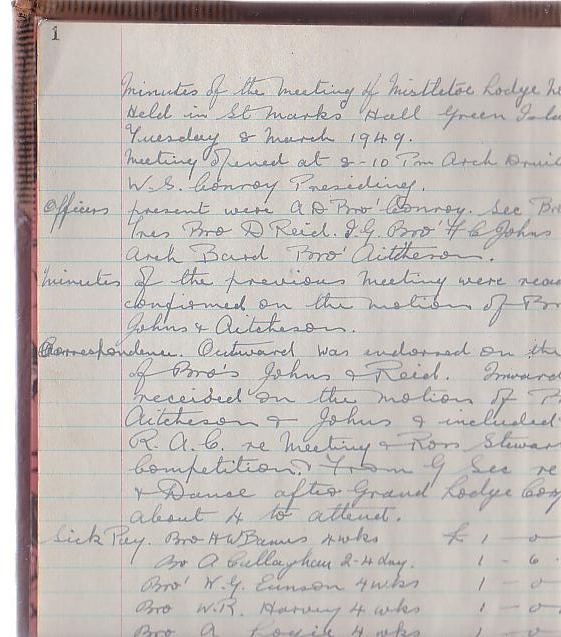 1
Minutes of the Meeting of Mistletoe Lodge
Held in St Marks Hall Green Isla
Tuesday 8 March 1949.
Meeting opened at 8-10 Pm Arch Druid
W.S. Conroy Presiding.
Officers present were A D Bro' Conroy. Sec Br
Tres Bro D Reid. I.G. Bro' H C Johns
Arch Bard Bro' Aitcheson.
Minutes of the previous Meeting were read
confirmed on the motions of Br
Johns & Aitcheson.
Correspondence. Outward was endorsed on the
of Bro's Johns & Reid. Inward
received on the motion of B
Aitcheson & Johns & included
R. A. C. re Meeting & Ross Stewar
Competition. & From G Sec re
& Dance after Grand Lodge
about 4 to attend.
Sick Pay. Bro H W 4 wks £ 1 - 0
Bro A Callaghan 2-4 day. 1 - 6
Bro' W. G. Eunson 4 wks 1 - 0
Bro W.R. Harvey 4 wks 1 - 0
Bro A Logie 4 wks 1 - 0